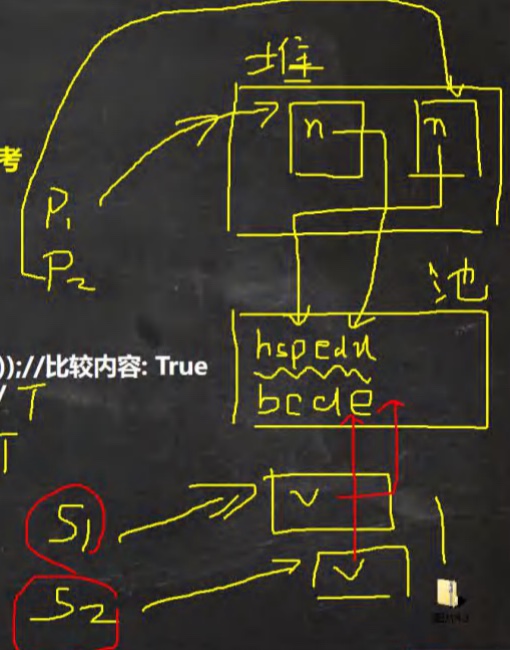 堆
n n
考
P1
P2
池
hspedu
));//比较内容: True
bcde
/ T
T
S1
v
S2
v